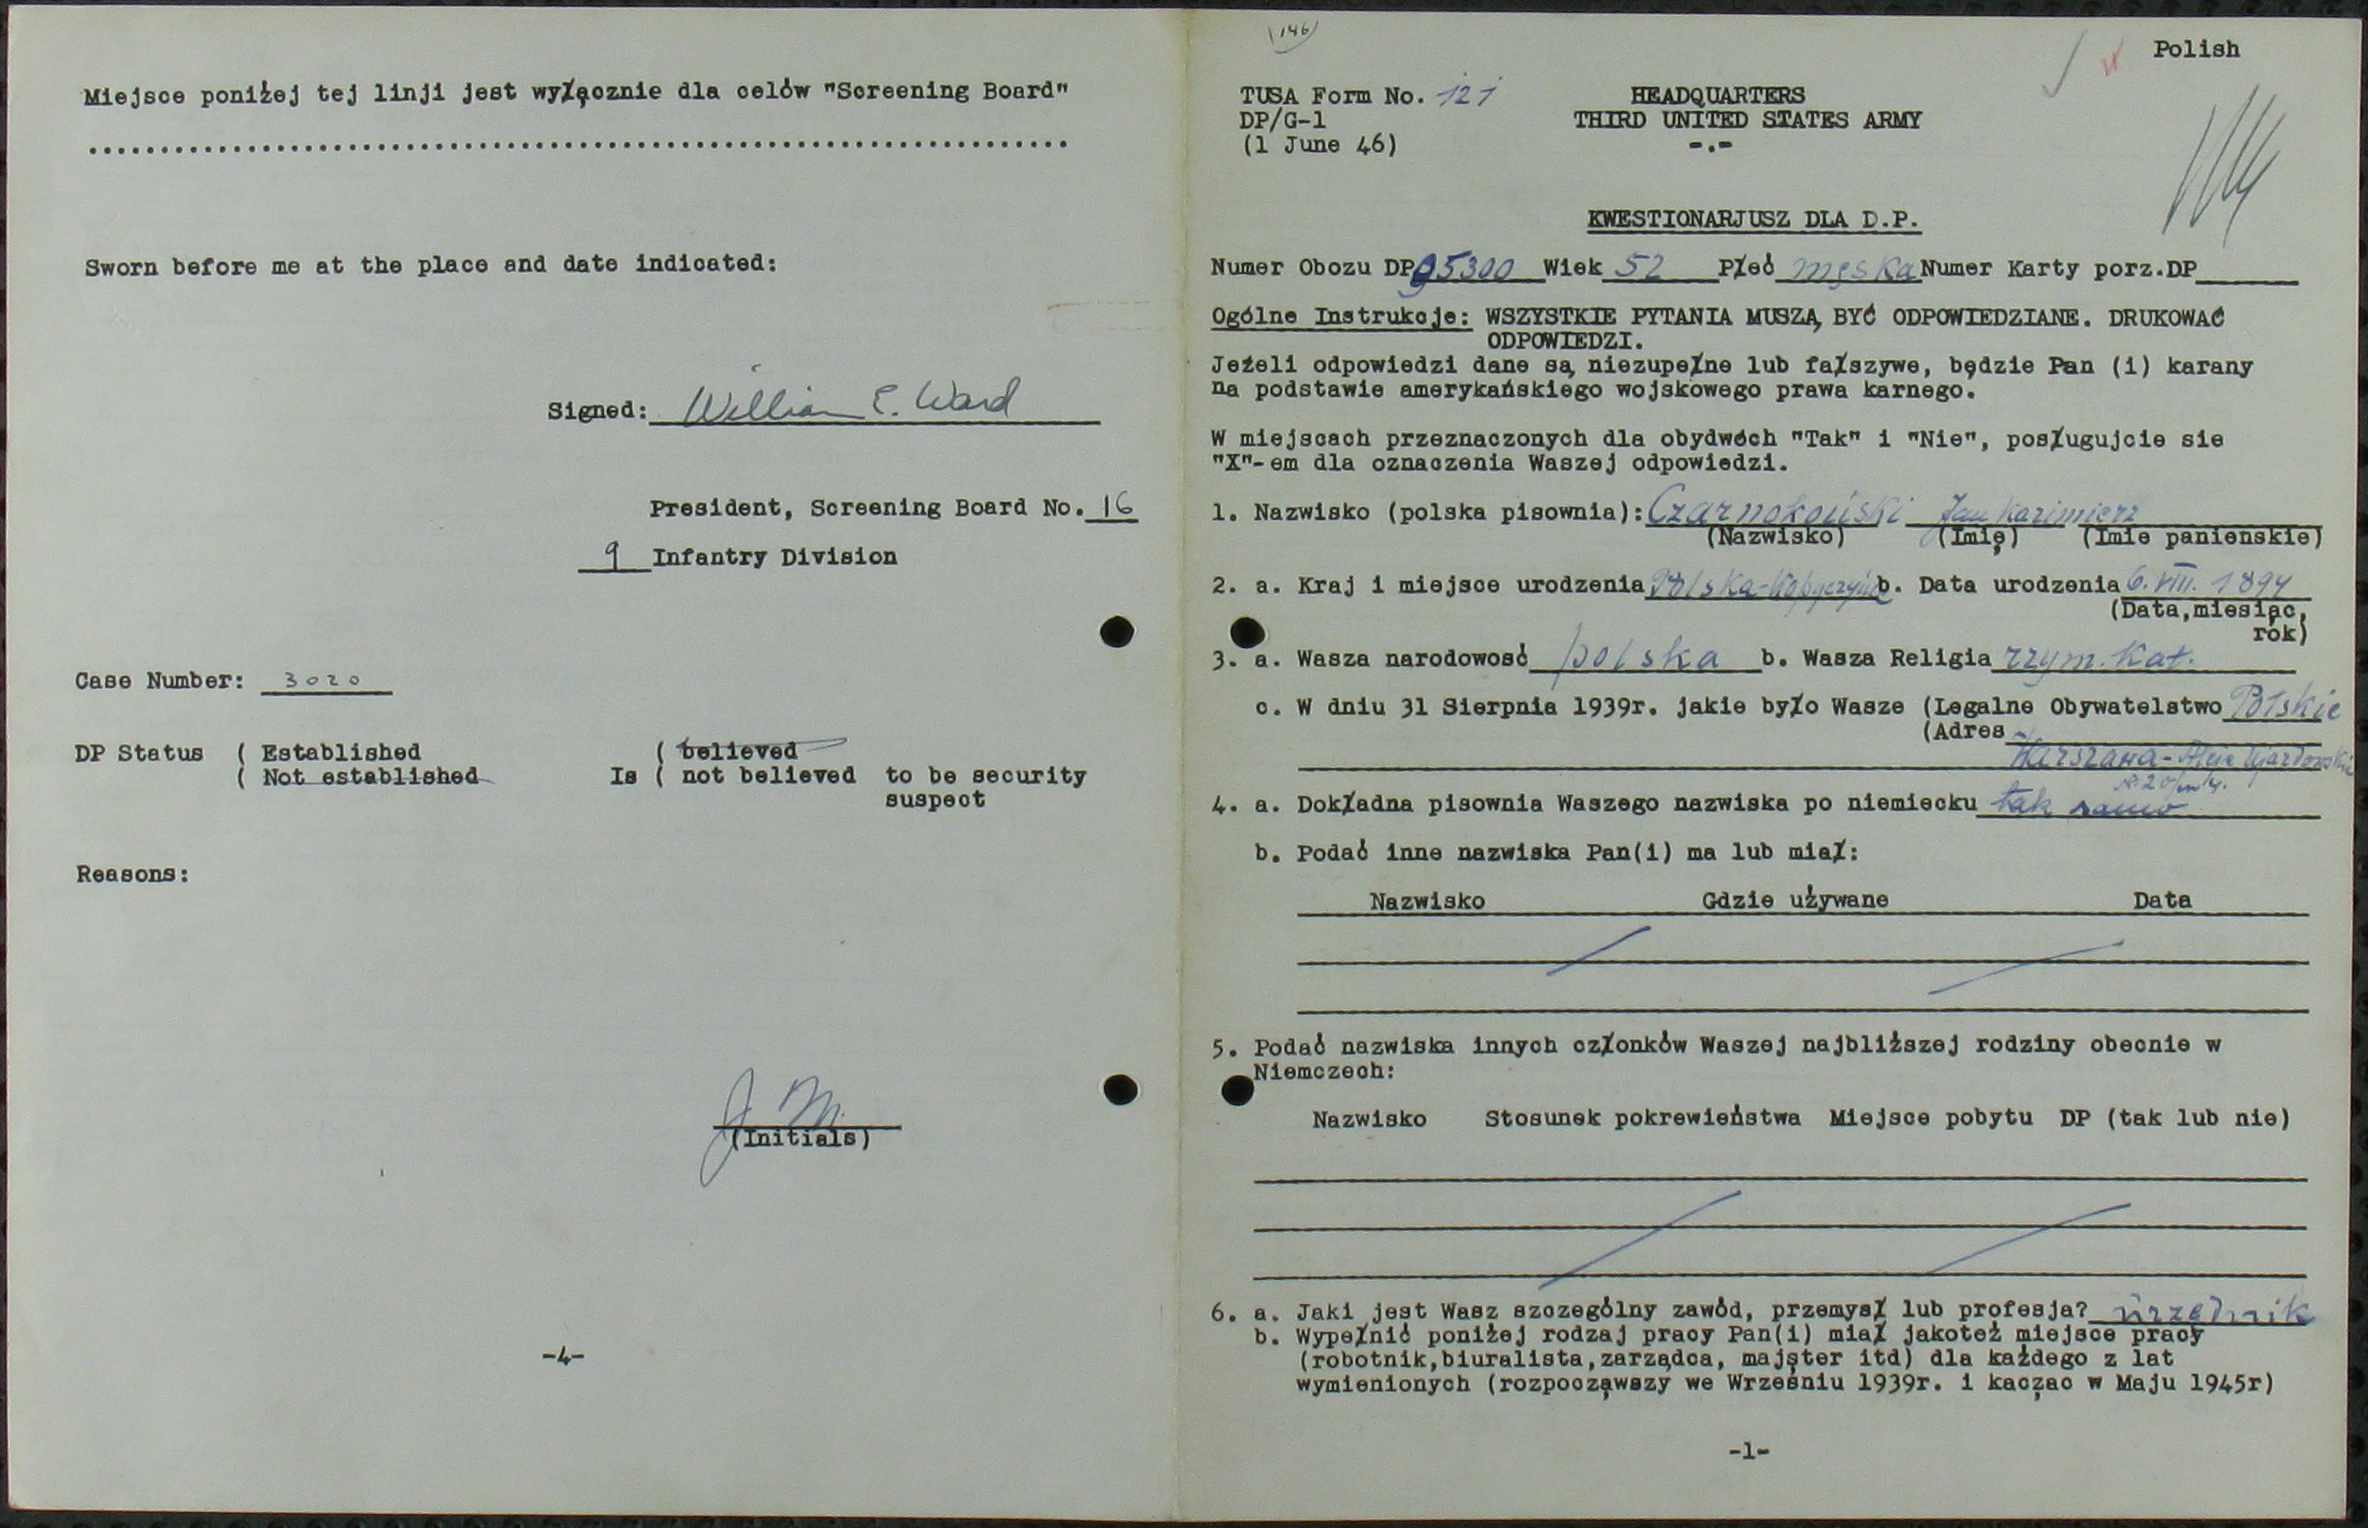 Miejsce poniżej tej linji jest wyłącznie dla celów "Screening Board"
Sworn before me at the place and date indicated:
Signed: William E. Ward
President, Screening Board No. 16
9 Infantry Division
Case Number: 3020
DP Status ( Established ( believed
( Not established Is ( not believed to be security
suspect
Reasons:
J. M.
(Initials)
-4-
146
Polish
TUSA Form No. 121 HEADQUARTERS
DP/G-1 THIRD UNITED STATES ARMY
(1 June 46) -.-
KWESTIONARJUSZ DLA D.P.
Numer Obozu DP 95300 Wiek 52 Płeć męska Numer Karty porz.DP
Ogólne Instrukcje: WSZYSTKIE PYTANIA MUSZĄ BYĆ ODPOWIEDZIANE. DRUKOWAĆ
ODPOWIEDZI.
Jeżeli odpowiedzi dane są niezupełne lub fałszywe, będzie Pan (i) karany
na podstawie amerykańskiego wojskowego prawa karnego.
W miejscach przeznaczonych dla obydwóch "Tak" i "Nie", posługujcie sie
"X"-em dla oznaczenia Waszej odpowiedzi.
1. Nazwisko (polska pisownia): Czarnokoński Jan Kazimierz
(Nazwisko) (Imię) (Imie panienskie)
2. a. Kraj i miejsce urodzenia Polska- b. Data urodzenia 6. VIII. 1894
(Data,miesiąc,
rok)
3. a. Wasza narodowosć polska b. Wasza Religia rzym. kat.
c. W dniu 31 Sierpnia 1939r. jakie było Wasze (Legalne Obywatelstwo Polskie
(Adres
Warszawa - Aleje Ujazdowskie
20
4. a. Dokładna pisownia Waszego nazwiska po niemiecku tak samo
b. Podać inne nazwiska Pan(i) ma lub miał:
Nazwisko Gdzie używane Data
5. Podać nazwiska innych członków Waszej najbliższej rodziny obecnie w
Niemczech:
Nazwisko Stosunek pokrewieństwa Miejsce pobytu DP (tak lub nie)
6. a. Jaki jest Wasz szczególny zawód, przemysł lub profesja? urzędnik
b. Wypełnić poniżej rodzaj pracy Pan(i) miał jakoteż miejsce pracy
(robotnik,biuralista,zarządca, majster itd) dla każdego z lat
wymienionych (rozpocząwszy we Wrześniu 1939r. i kacząc w Maju 1945r)
-1-